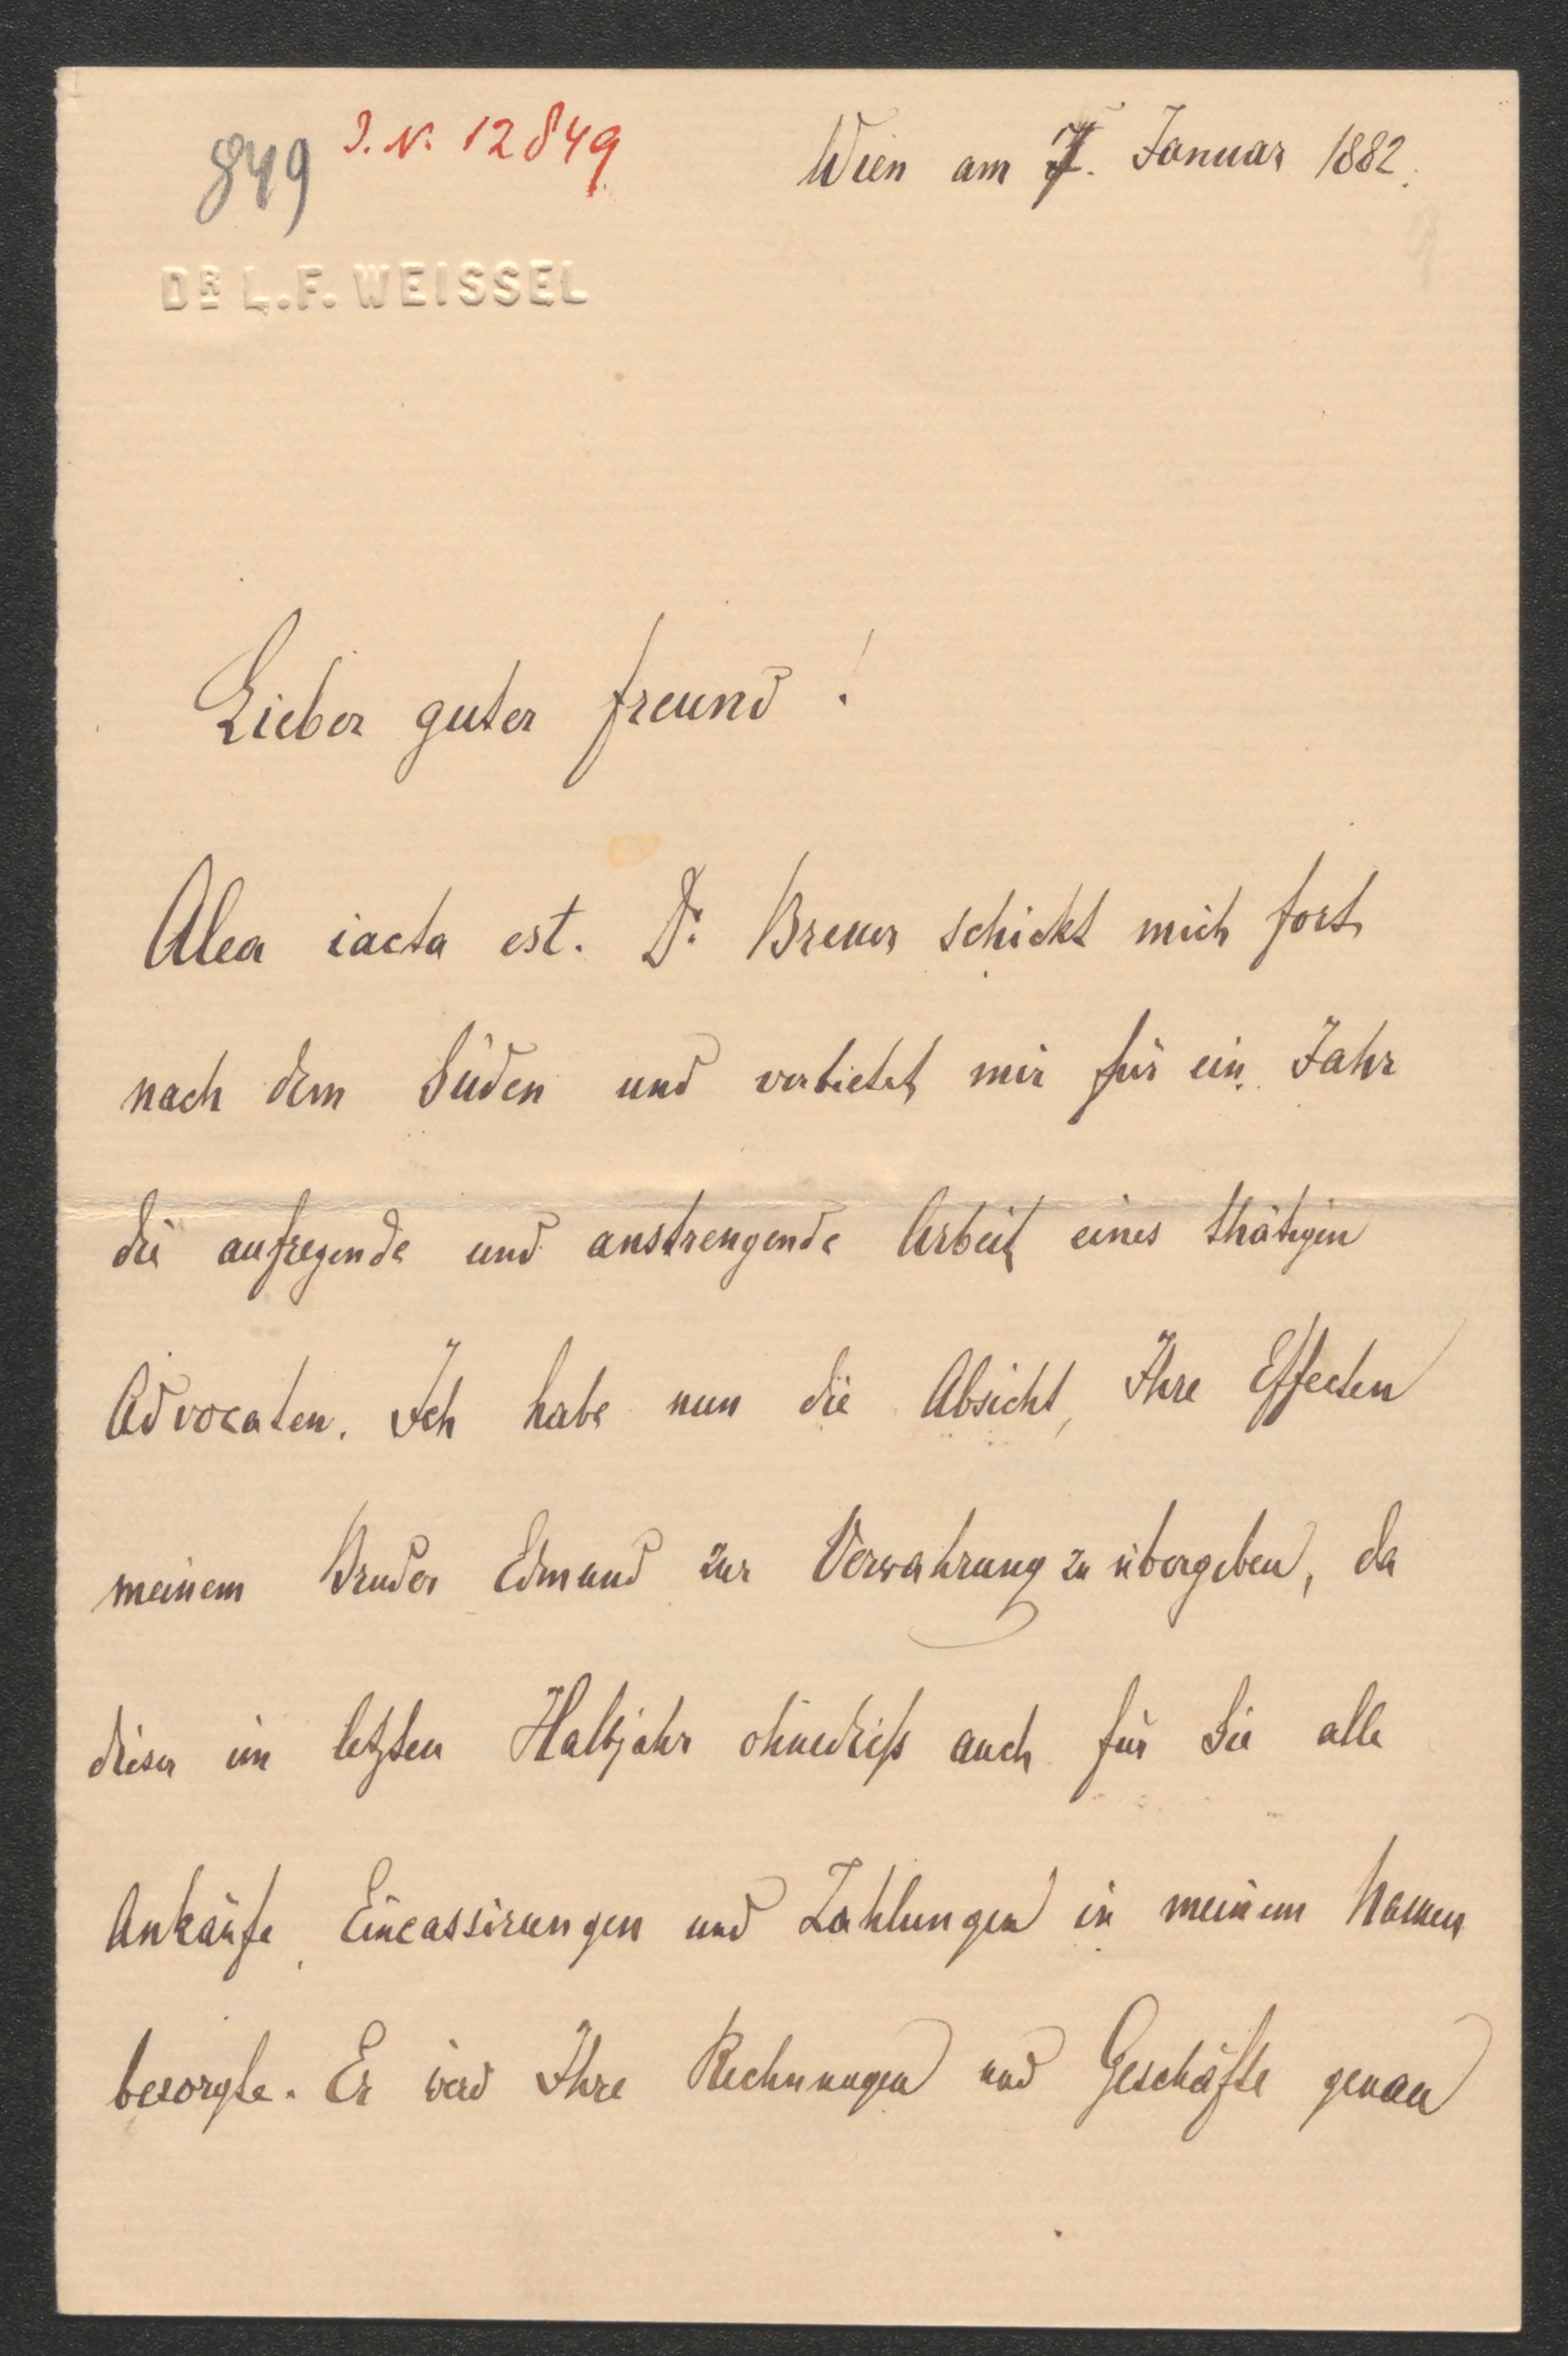 849 I. N. 12849
Wien am 7. Januar 1882.
DR L. F. WEISSEL
Lieber guter Freund!
Alea iacta est. Dr. Breuer schickt mich fort
nach dem Süden und verbietet mir für ein Jahr
die aufregende und anstrengende Arbeit eines thätigen
Advocaten. Ich habe nun die Absicht, Ihre Effecten
meinem Bruder Edmund zur Verwahrung zu übergeben, da
dieser im letzten Halbjahr ohnedieß auch für Sie alle
Ankäufe, Eincassirungen und Zahlungen in meinem Namen
besorgte. Er wird Ihre Rechnungen und Geschäfte genau